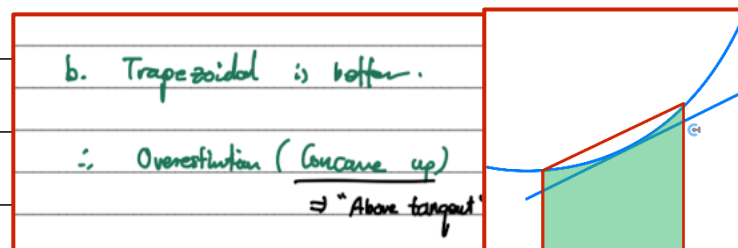 b. Trapezoidal is better.
∴ Overestimation (Concave up)
⇒ "Above tangent"